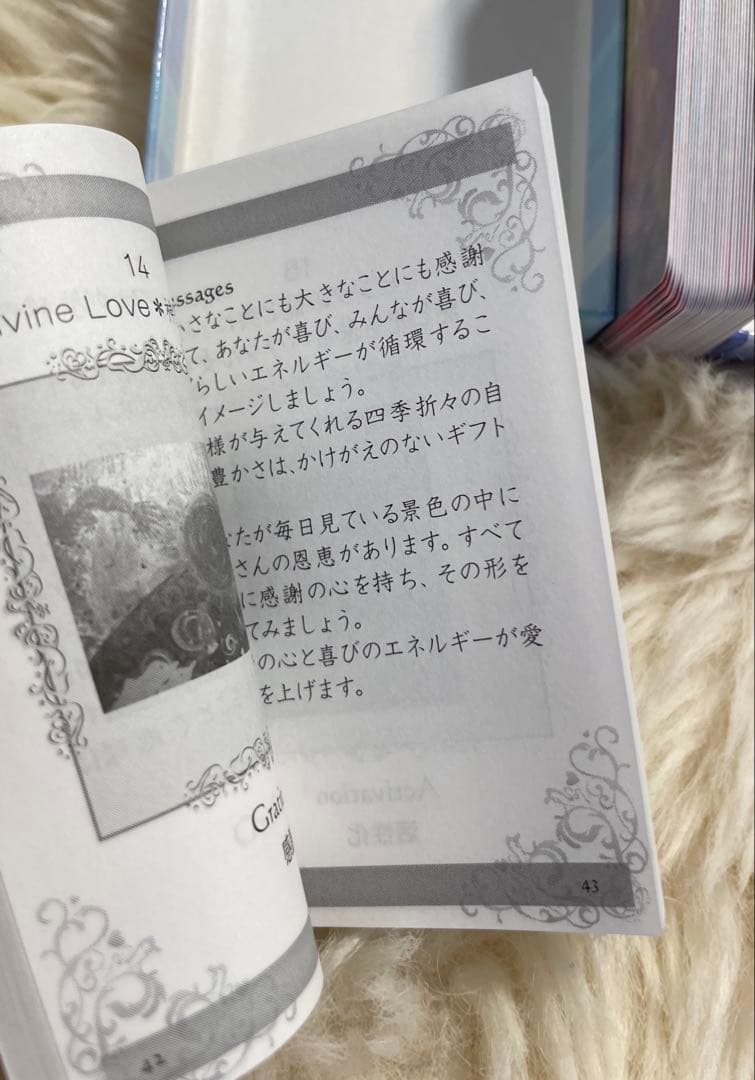 14
vine Love*
Gra
42
ssages
さなことにも大きなことにも感謝
て、あなたが喜び、みんなが喜び、
らしいエネルギーが循環するこ
イメージしましょう。
様が与えてくれる四季折々の自
豊かさは、かけがえのないギフト
たが毎日見ている景色の中に
さんの恩恵があります。すべて
に感謝の心を持ち、その形を
てみましょう。
の心と喜びのエネルギーが愛
を上げます。
Activation
活性化
43